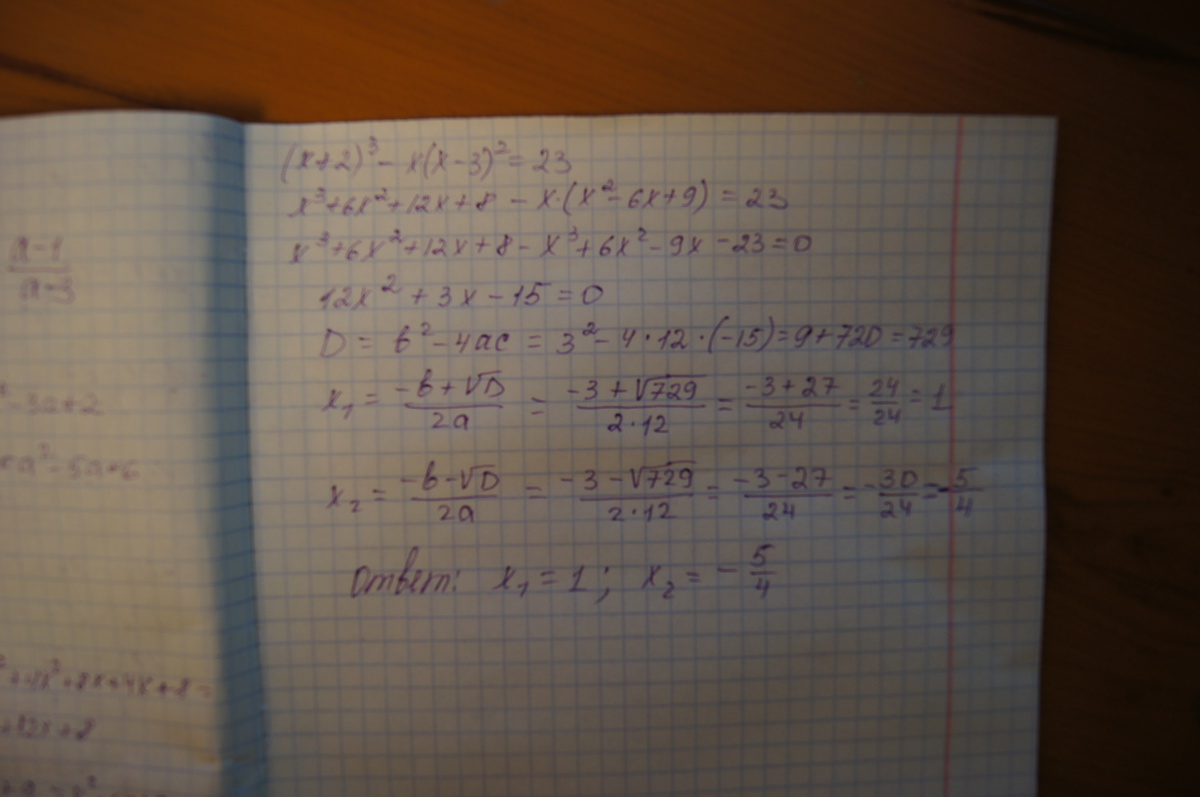 a-1
a-3
-3a+2
a²-5a+6
+12x+8
(x+2)³ - x(x-3)² = 23
x³+6x²+12x+8 - x·(x²-6x+9) = 23
x³+6x²+12x+8-x³+6x²-9x-23=0
12x² + 3x - 15 = 0
D = b²-4ac = 3²-4·12·(-15)=9+720=729
x₁ = (-b+√D)/(2a) = (-3+√729)/(2·12) = (-3+27)/24 = 24/24 = 1
x₂ = (-b-√D)/(2a) = (-3-√729)/(2·12) = (-3-27)/24 = -30/24 = -5/4
Ответ: x₁ = 1; x₂ = -5/4